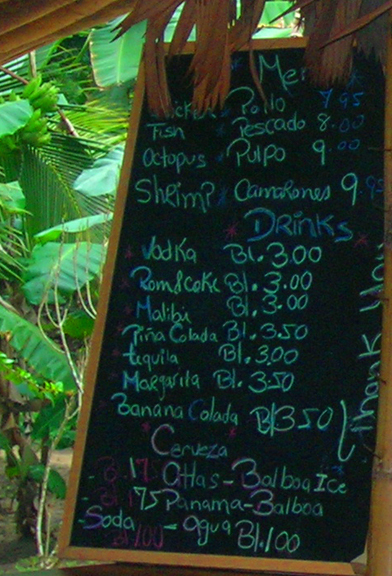 Menu
Chicken * Pollo 7.95
Fish * Pescado 8.00
Octopus * Pulpo 9.00
Shrimp * Camarones 9.95
* DRINKS *
* Vodka Bl. 3.00
* Rom&coke Bl. 3.00
* Malibu Bl. 3.00
* Piña Colada Bl. 3.50
* tequila Bl. 3.00
* Margarita Bl. 3.50
* Banana Colada Bl 3.50
* Cerveza *
- Bl. 1.75 Atlas - Balboa Ice
- Bl 1.75 Panama - Balboa
- Soda - agua Bl. 1.00
Bl 1.00
Thank You